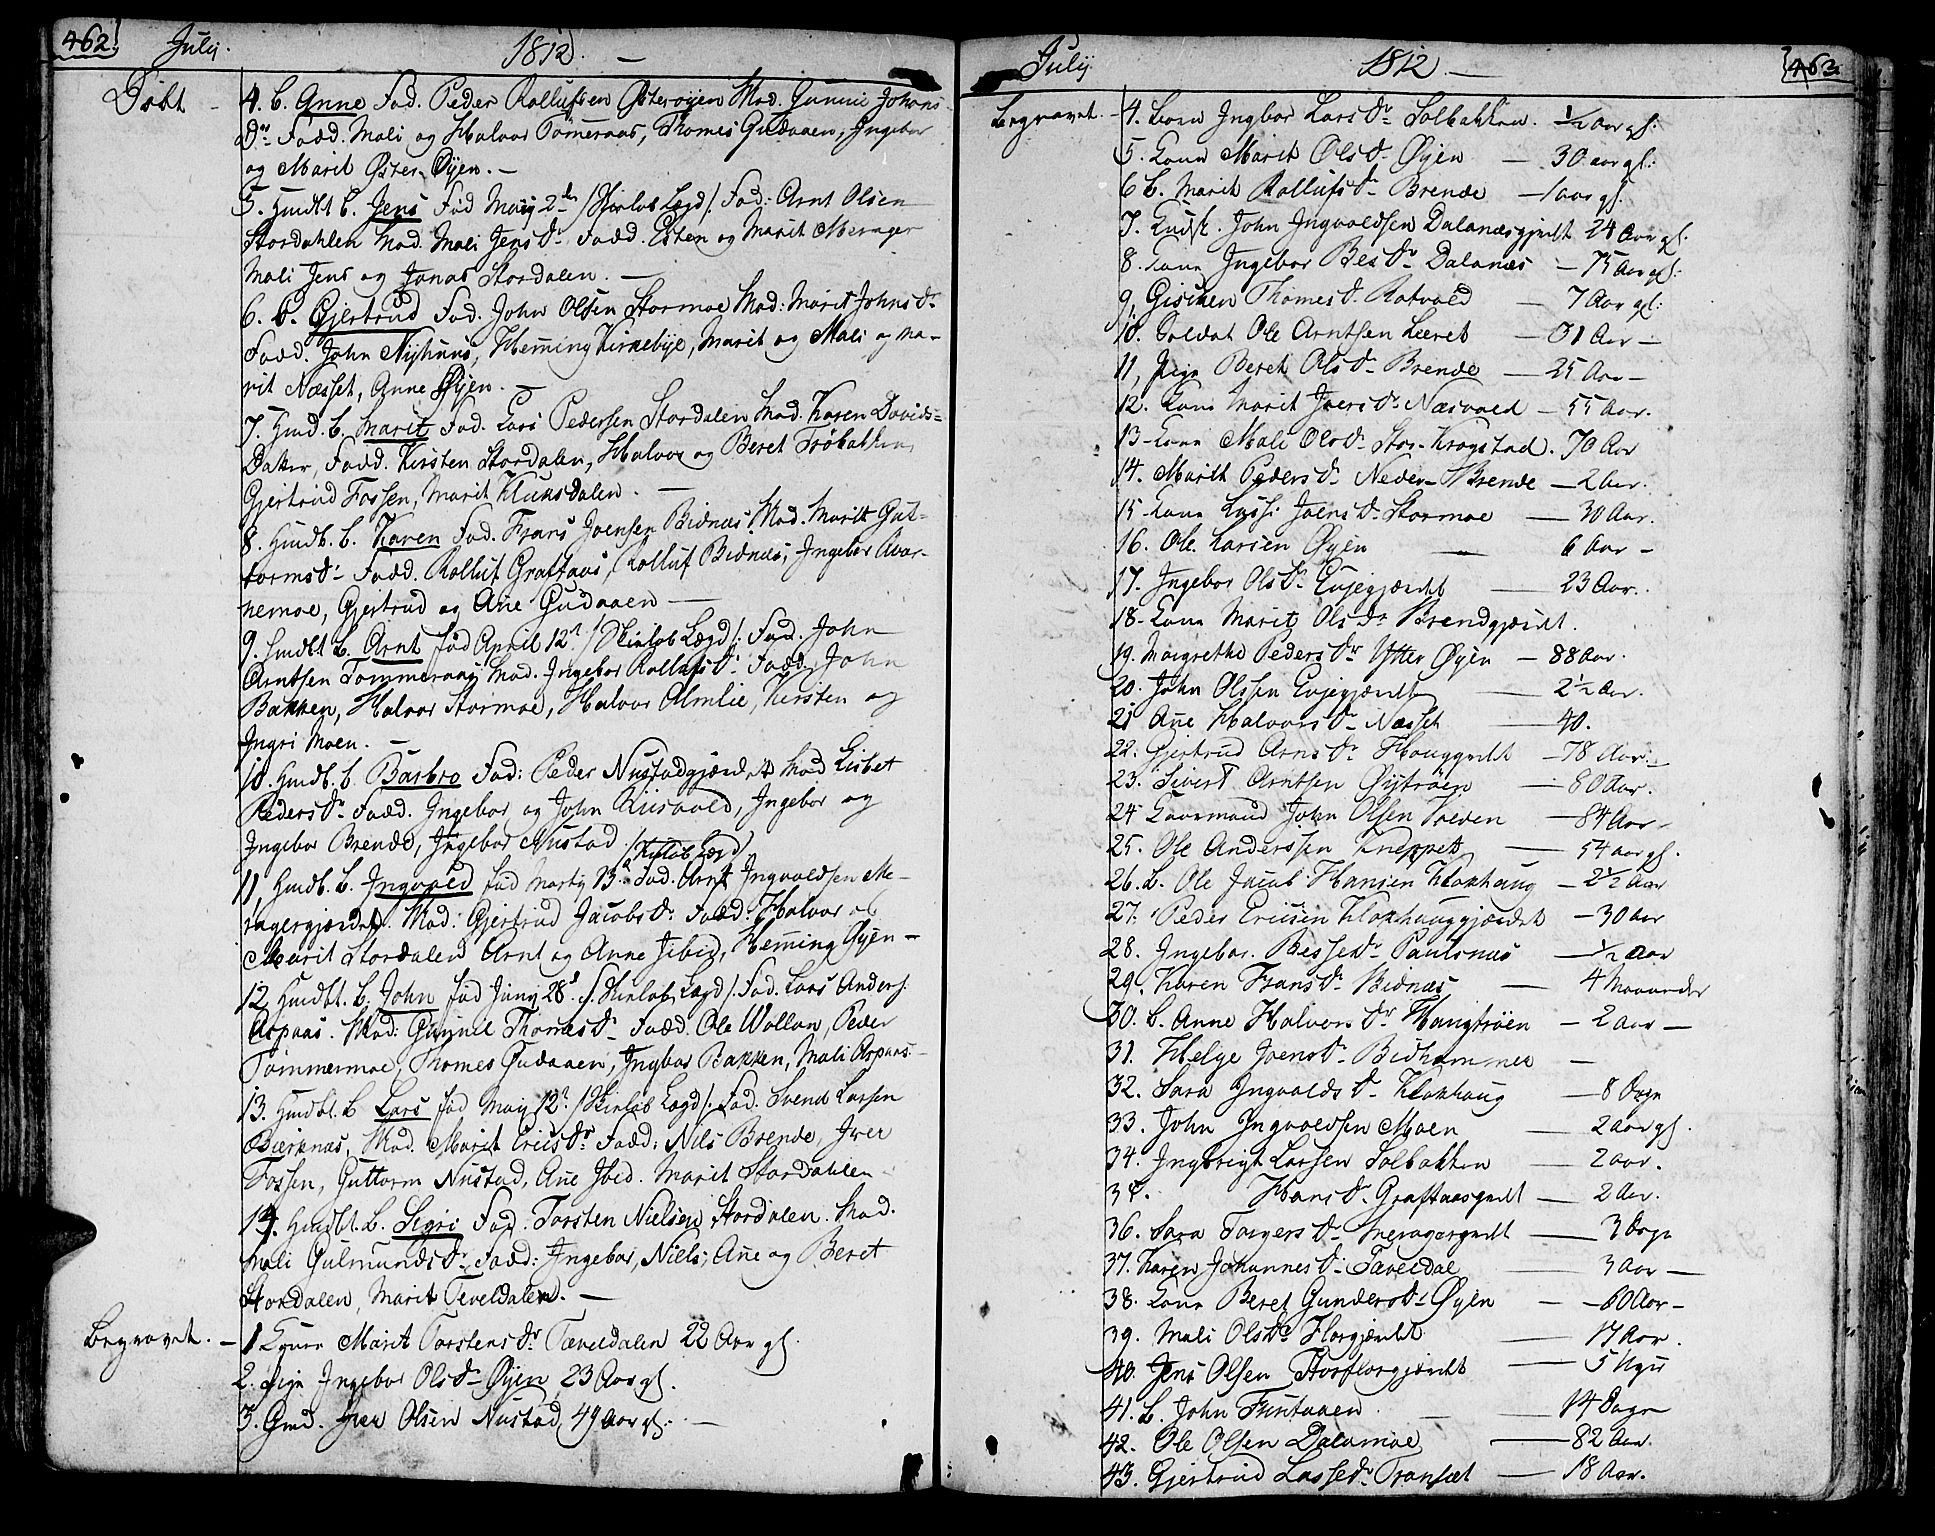 462. July. 1812.
Döbt - 4. B. Anne Fad. Peder Rollufsen Østerøyen Mod. Gunnil Johans
Dr. Fadd. Mali og Halvor Tømeraas, Thomes Gudaaen, Ingebor
og Marit Øster Øyen. -
5. Hmdbt B. Jens Fød May 2d /Skirlob Lægd/: Fad: Arnt Olsen
Stordahlen Mod. Mali Jens Dr. Fadd. Esten og Marit Merager
Mali Jens og Jonas Stordalen. -
6. B. Gjertrud Fad. John Olsen Stormoe Mod: Marit Johns Dr.
Fadd. John Nyhuus, Heming Kirkebye, Marit og Mali og Ma-
rit Næsset, Anne Øyen. -
7. Hmd. B. Marit Fad. Lars Pedersen Stordalen Mod. Karen Davids-
Datter, Fadd. Kirsten Stordalen, Halvor og Beret Trøbakken
Gjertrud Fossen, Marit Kluksdalen. -
8. Hmdb. B. Karen Fad. Frans Joensen Bidnæs Mod. Marit Gut-
tormsdr. Fadd. Rolluf Graftaas, Rolluf Bidnæs, Ingebor Avar-
nemoe, Gjertrud og Ane Gudaaen -
9. Hmdbt B. Arnt fød April 12t /Skirlob Lægd/: Fad. John
Arntsen Tommeraas Mod. Ingebor Rollufs Dr. Fadd. John
Bakken, Halvor Stormoe, Halvor Almlie, Kirsten og
Ingri Moen. -
10. Hmdb. B. Barbro Fad: Peder Nustadgjærdet Mod Lisbet
Peders Dr. Fadd. Ingebor og John Kiisvold, Ingebor og
Ingebor Brende, Ingebor Nustad. /Skirlob Lægd/
11, Hmdb. B. Ingvold fød Marty 13d. Fad. Arnt Ingvoldsen Me-
ragergjærdet. Mod: Gjertrud Jacobs Dr. Fadd: Halvor og
Marit Stordalen Arnt og Anne Ibid, Heming Øyen -
12. Hmdbt. B. John fød Juny 28d. /Skirlob Lægd/. Fad. Lars Anders.
Aspaas. Mod: Gunnil Thomes Dr. Fadd. Ole Wollan, Peder
Tommermoe, Thomes Gudaaen, Ingbor Bakken, Mali Aspaas. -
13. Hmdbt. B Lars fød May 12t. /Skirlob Lægd/. Fad. Svend Larsen
Bærknæs, Mod. Marit Erics Dr Fadd: Nils Brende, Iver
Fossen, Guttorm Nustad, Ane Ibid. Marit Stordahlen
14. Hmdbt. B. Sigri Fad. Torsten Nielsen Stordalen. Mod.
Mali Gulmunds Dr. Fadd: Ingebor, Niels, Ane og Beret
Stordalen, Marit Teveldalen. -
Begravet. - 1 Marit Torstens Dr. Tæveldalen 22 Aar gl.
2. Pige Ingebor Ols Dr. Øyen 23 Aar gl.
3. Gmd. Iver Olsen Nustad, 49 Aar gl. -
July. 1812 - 463
Begravet. - 4. Barn Ingbor Lars Dr. Solbakken. ½ Aar gl:
5. Kone Marit Ols Dr. Øyen - 30 aar gl:
6 B. Marit Rollufs Dr. Brende - 1 aar gl.
7. John Ingvoldsen Dalanæsgjerdt 24 Aar gl.
8. Kone Ingebor Bes Dr. Dalanæs - 75 Aar gl:
9, Thomes D. Rotvold - 7 Aar gl:
10. Soldat Ole Arntsen Lieret - 31 Aar -
11, Pige Beret Ols Dr. Brende - 25 Aar -
12. Kone Marit Joers Dr. Næsvold - 55 Aar.
13 - Kone Mali Ols Dr. Stor-Krogstad. 70 Aar
14. Marit Peders Dr. Neder-Brende - 2 Aar.
15 - Kone Lussi Joens Dr. Stormoe - 30 Aar.
16. Ole Larsen Øyen - 6 Aar -
17. Ingebor Ols Dr. Evjegjærdt - 23 Aar.
18 - Kone Marit Ols Dr. Brendgjærdt.
19. Margrethe Peders Dr Ytter Øyen - 88 Aar.
20. John Olssen Evjegjærdt - 2½ Aar.
21 Ane Halvors Dr. Næsset - 40.
22. Gjertrud Arns Dr. Hauggerdt - 78 Aar. -
23. Sivert Arntsen Øytrøen - 80 Aar.
24 John Olsen - 84 Aar -
25. Ole Anderssen Kneppet - 54 aar gl.
26. B. Ole Jacob Hansen Kloxhaug - 2½ Aar
27. Peder Ericsen Kloxhauggjærdet - 30 Aar
28. Ingebor. Besse Dr. Paulsnæs - ½ Aar
29. Karen Frans Dr. Bidnæs - 4 Maaneder
30. B. Anne Halvors Dr Haugtrøen - 2 aar -
31. Helge Joens Dr. Bidhammer -
32. Sara Ingvolds Dr. Kloxhaug - 8 Dage
33. John Ingvoldsen Moen - 2 aar gl.
34. Ingbrigt Larsen Solbakken - 2 aar.
35. Hans Dr. Graftaasgerdt - 2 Aar.
36. Sara Torgers Dr. Meragergerdt - 3 Dage
37. Karen Johannes Dr. Tæveldal - 3 aar -
38. Kone Beret Gunders Dr. Øyen - 60 Aar -
39. Mali Olsdr. Florgjærdt - 17 Aar.
40. Jens Olsen Storflorgjærdt - 5 Uger
41. B. John Funtaaen - 14 Dage
42. Ole Olsen Dalamoe - 82 Aar.
43. Gjertrud Lasse Dr. Tronsæt - 18 Aar.